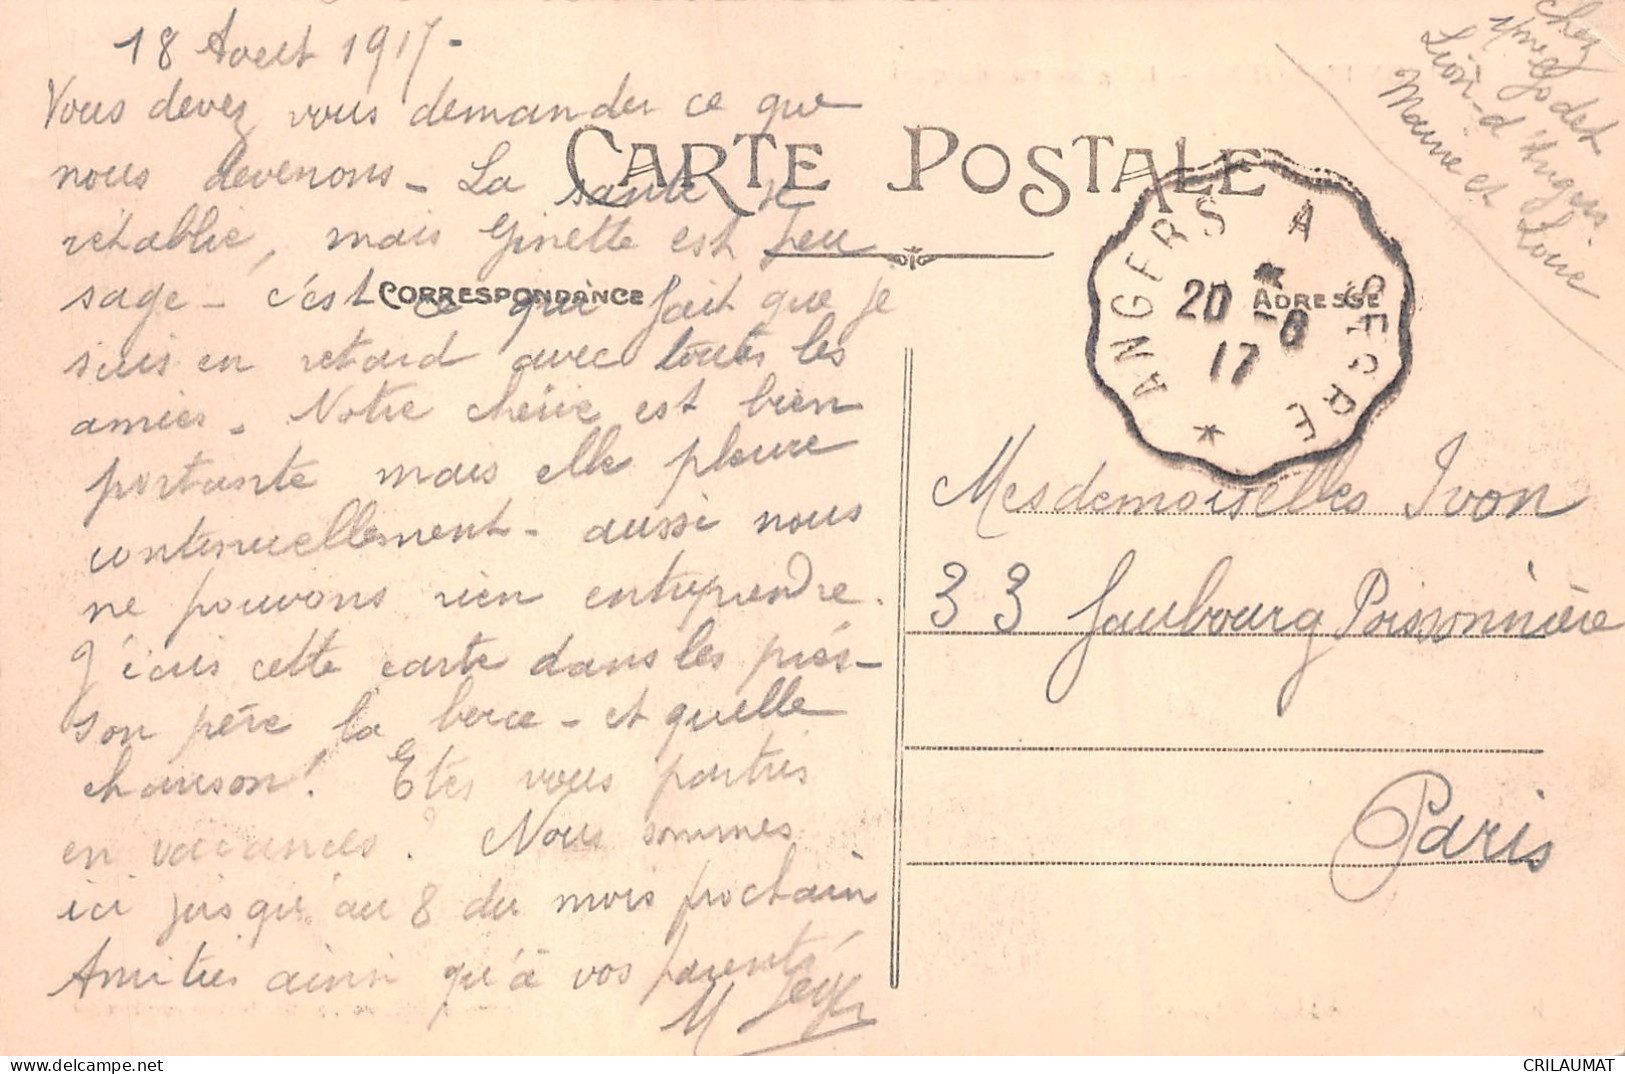 18 Août 1917 -
Vous devez vous demander ce que
nous devenons - La santé se
rétablie, mais Ginette est peu
sage - c'est ce qui fait que je
suis en retard avec toutes les
amies - Notre chérie est bien
portante mais elle pleure
continuellement - aussi nous
ne pouvons rien entreprendre.
J'écris cette carte dans les prés -
son père la berce - et quelle
chanson! Etes vous parties
en vacances? Nous sommes
ici jusqu'au 8 du mois prochain
Amitiés ainsi qu'à vos parents
M
CARTE POSTALE
CORRESPONDANCE
ADRESSE
ANGERS A SEGRE
20 - 8
17
chez
Mme Godet
Lion-d'Angers
Maine et Loire
Mesdemoiselles Ivon
33 faubourg Poissonnière
Paris
CRILAUMAT